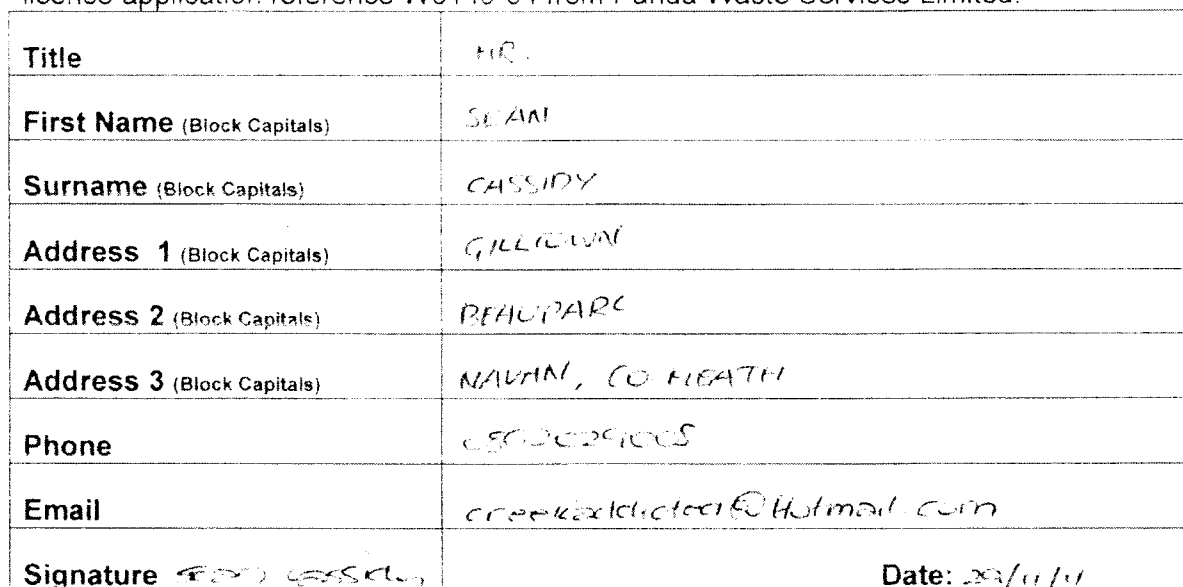 Title MR.
First Name (Block Capitals) SEAN
Surname (Block Capitals) CASSIDY
Address 1 (Block Capitals) GILLTOWN
Address 2 (Block Capitals) BEAUPARC
Address 3 (Block Capitals) NAVAN, CO MEATH
Phone
Email
Signature Sean Cassidy Date: